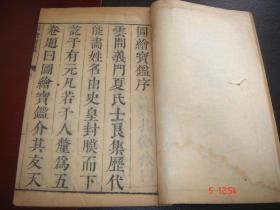 圖繪寶鑑序
雲間義門夏氏士良集歷代
能畫姓名由史皇封膜而下
訖于有元凡若干人釐為五
卷題曰圖繪寶鑑介其友天
5-12:51